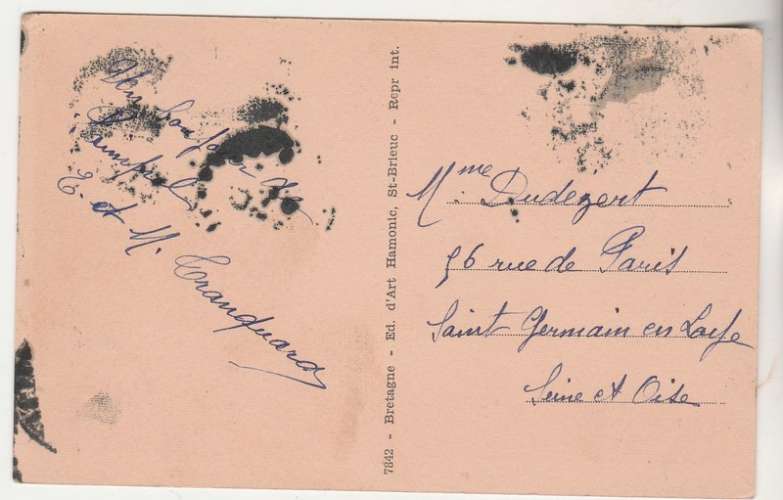 Un bonjour de
Paimpol
E. et M. Tranquard
7842 - Bretagne - Ed. d'Art Hamonic, St-Brieuc - Repr int.
Mme Dudezert
56 rue de Paris
Saint Germain en Laye
Seine et Oise